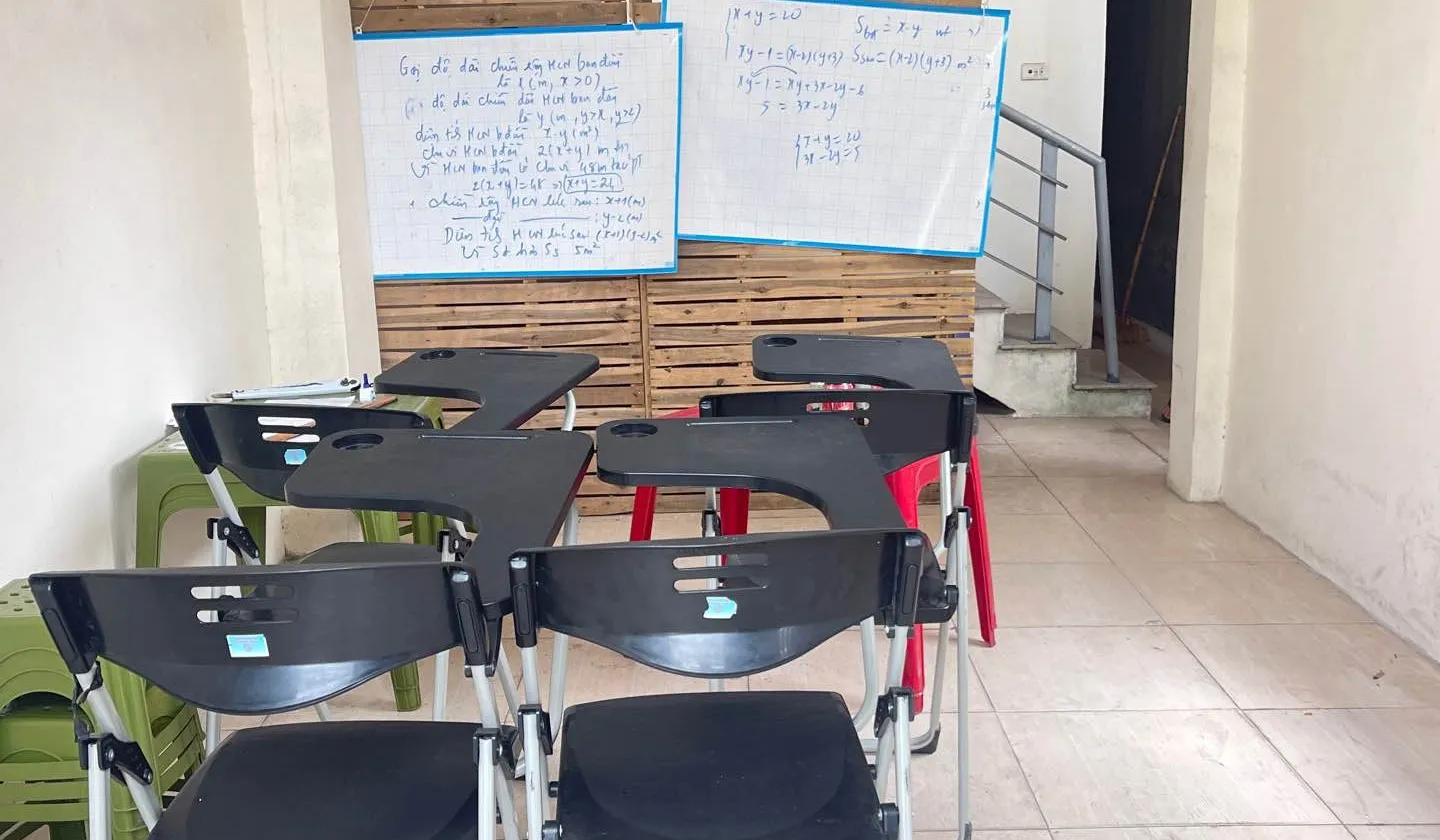 Gọi độ dài chiều rộng HCN ban đầu
là x (m, x>0)
độ dài chiều dài HCN ban đầu
là y (m, y>x, y>2)
diện tích HCN b đầu x.y (m²)
Chu vi HCN b đầu 2(x+y) m
Vì HCN ban đầu có chu vi 48m
2(x+y)=48 => x+y=24
+ chiều rộng HCN lúc sau: x+1(m)
dài : y-2(m)
Diện tích HCN lúc sau (x+1)(y-2) m²
Vì 5m²
x+y=20
xy-1=(x-2)(y+3)
xy-1=xy+3x-2y-6
5 = 3x-2y
x+y=20
3x-2y=5
= x-y
=(x-2)(y+3) m²